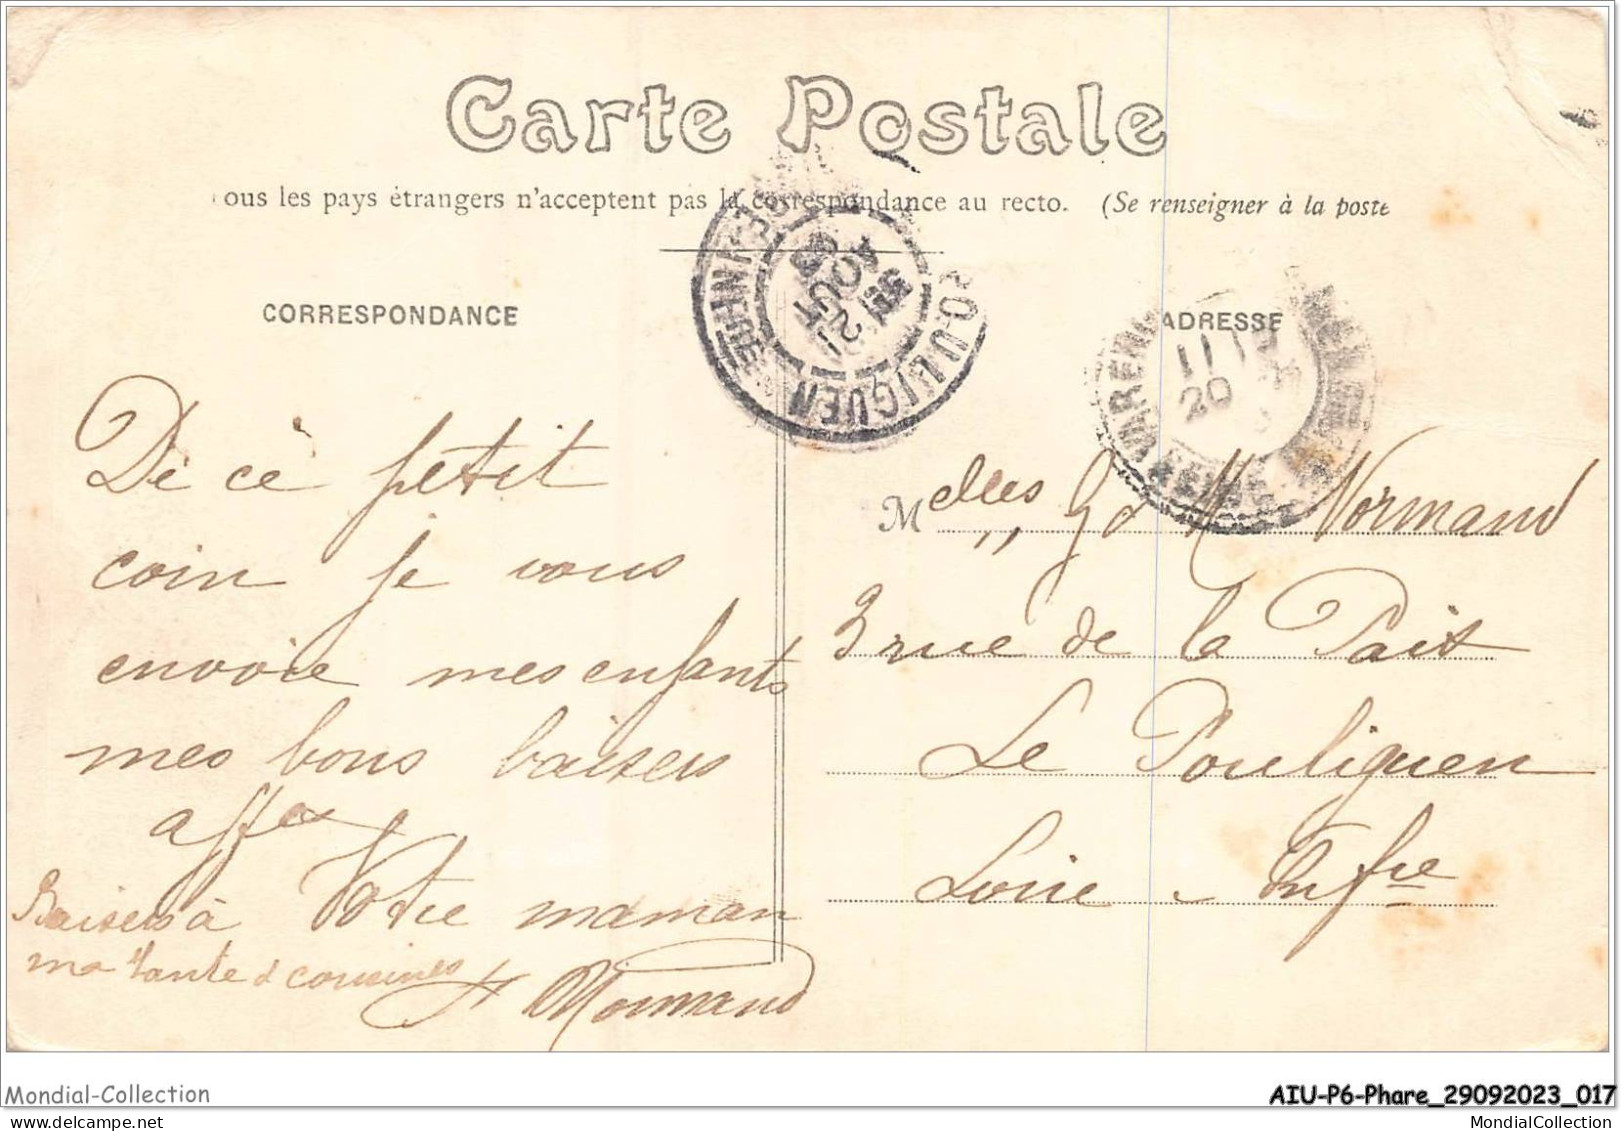 Carte Postale
ous les pays étrangers n'acceptent pas la correspondance au recto. (Se renseigner à la poste
CORRESPONDANCE
ADRESSE
LE POULIGUEN
21
AOUT
VAREN
11
20
De ce petit
coin je vous
envoie mes enfants
mes bons baisers
affes
Votre maman
Normand
Baisers à
ma tante & cousines
Melles G d M Normand
3 rue de la Paix
Le Pouliguen
Loire - Infre
Mondial-Collection
AIU-P6-Phare_29092023_017
MondialCollection
MondialCollection